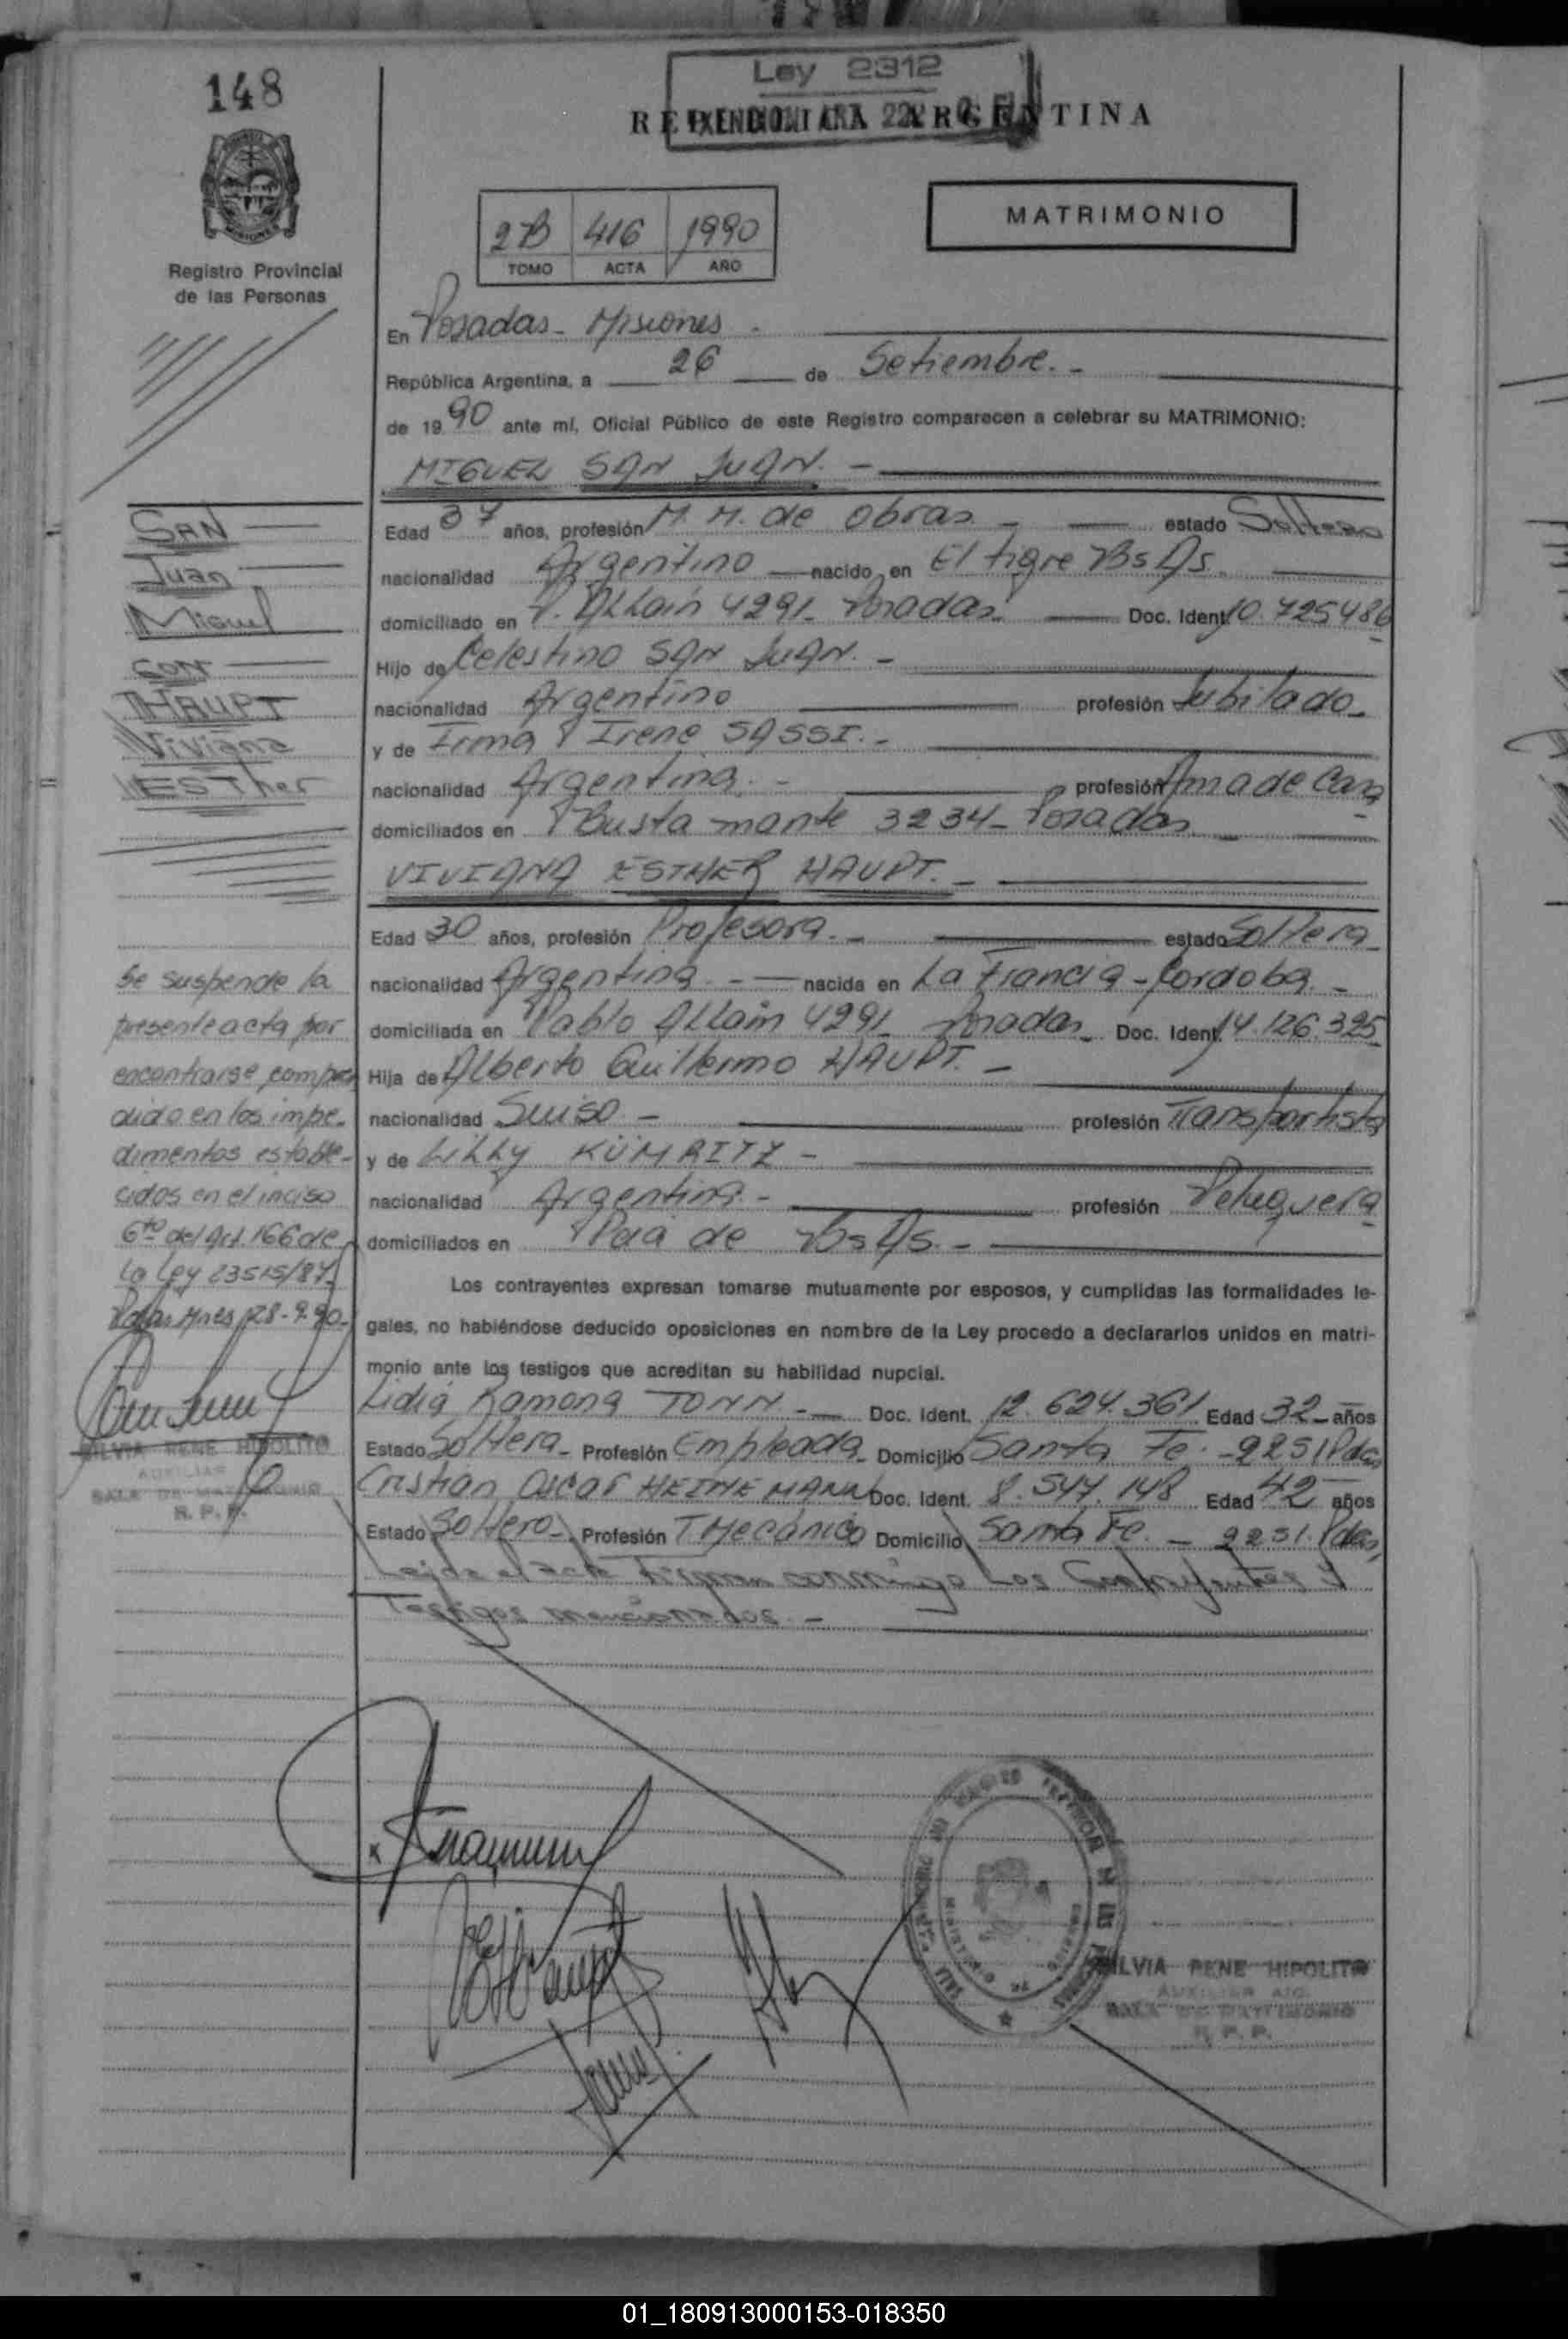 148
Ley 2312
REPUBLICA ARGENTINA
MATRIMONIO
2B 416 1990
TOMO ACTA AÑO
Registro Provincial
de las Personas
En Posadas - Misiones -
República Argentina, a 26 de Setiembre. -
de 1990 ante mí, Oficial Público de este Registro comparecen a celebrar su MATRIMONIO:
MIGUEL SAN JUAN. -
Edad 37 años, profesión M. M. de Obras - estado Soltero
nacionalidad Argentino nacido en El tigre Bs As.
domiciliado en P. Allain 4291 - Posadas. Doc. Ident. 10.725486
Hijo de Celestino SAN JUAN. -
nacionalidad Argentino profesión Jubilado -
y de Irma Irene SASSI. -
nacionalidad Argentina. - profesión Ama de Casa
domiciliados en Busta mante 3234 - Posadas
VIVIANA ESTHER HAUPT. -
Edad 30 años, profesión Profesora. - estado Soltera
nacionalidad Argentina - nacida en La Francia - Cordoba -
domiciliada en Pablo Allain 4291 Posadas Doc. Ident. 14.126.325
Hija de Alberto Guillermo HAUPT. -
nacionalidad Suiso - profesión Transportista
y de Lilly KÜMRITZ -
nacionalidad Argentina - profesión Peluquera
domiciliados en Pcia de Bs As. -
Los contrayentes expresan tomarse mutuamente por esposos, y cumplidas las formalidades le-
gales, no habiéndose deducido oposiciones en nombre de la Ley procedo a declararlos unidos en matri-
monio ante los testigos que acreditan su habilidad nupcial.
Lidia Ramona TONN - Doc. Ident. 12.624.361 Edad 32 - años
Estado Soltera - Profesión Empleada - Domicilio Santa Fe. - 2251 Pdas
Cristian Oscar HEINEMANN Doc. Ident. 8.547.148 Edad 42 años
Estado Soltero - Profesión T Mecánico Domicilio Santa Fe. - 2251. Pdas
Leida el acta firman conmigo Los Contrayentes y
Testigos mencionados. -
SAN
Juan
Miguel
CON
HAUPT
Viviana
ESTher
Se suspende la
presente acta por
encontrarse compren
dido en los impe-
dimentos estable-
cidos en el inciso
6to del Art. 166 de
La Ley 23515/87.
28-9-90-
SILVIA RENE HIPOLITO
AUXILIAR
SALA DE MATRIMONIO
R. P. P.
SILVIA RENE HIPOLITO
AUXILIAR
SALA DE MATRIMONIO
R. P. P.
01_180913000153-018350